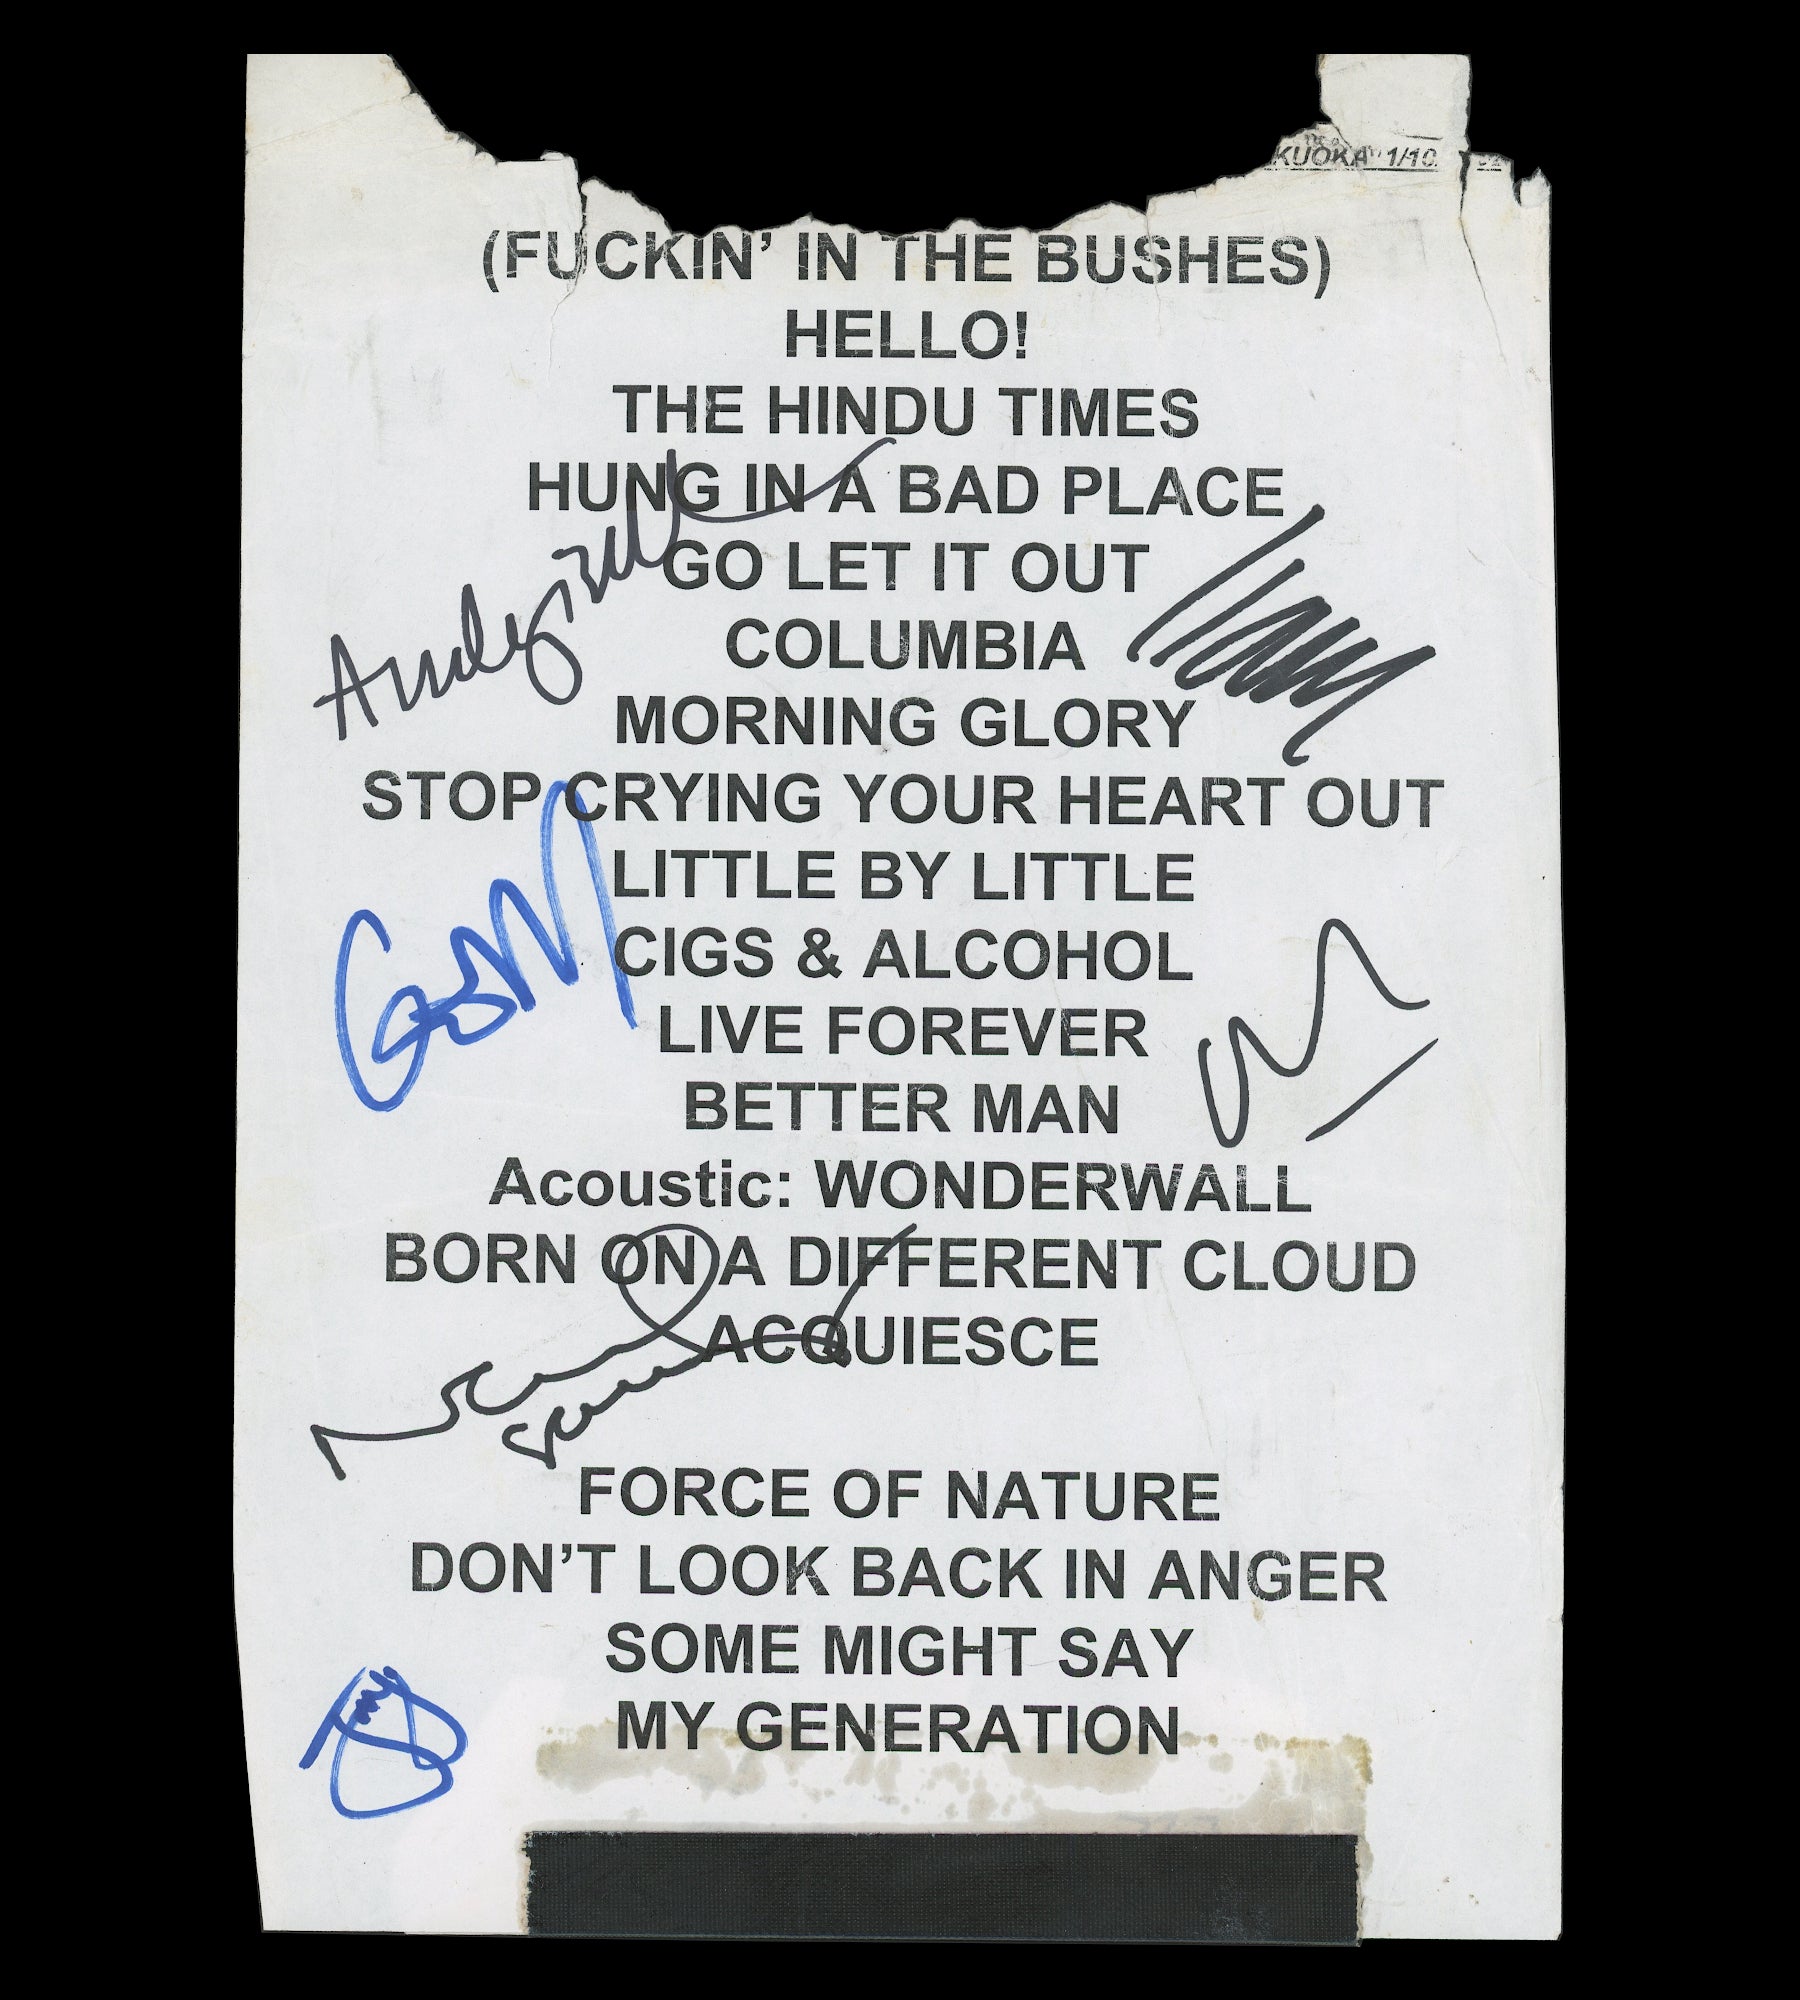 KUOKA 1/10
(FUCKIN' IN THE BUSHES)
HELLO!
THE HINDU TIMES
HUNG IN A BAD PLACE
GO LET IT OUT
COLUMBIA
MORNING GLORY
STOP CRYING YOUR HEART OUT
LITTLE BY LITTLE
CIGS & ALCOHOL
LIVE FOREVER
BETTER MAN
Acoustic: WONDERWALL
BORN ON A DIFFERENT CLOUD
ACQUIESCE
FORCE OF NATURE
DON'T LOOK BACK IN ANGER
SOME MIGHT SAY
MY GENERATION
Andy Bell
Liam
Gem